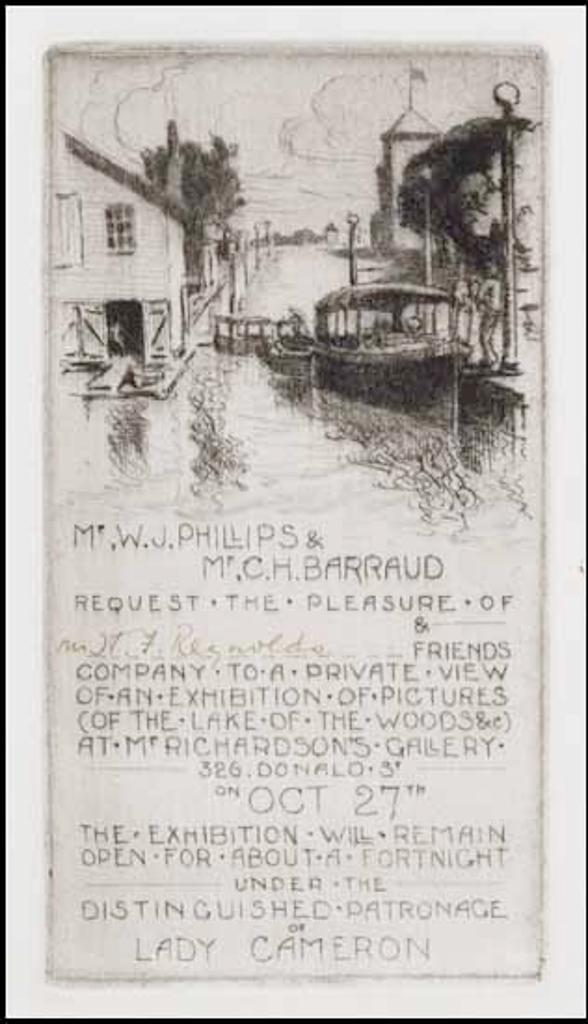 Mr. W. J. PHILLIPS &
Mr. C. H. BARRAUD
REQUEST · THE · PLEASURE · OF
&
Mr H. F. Reynolds FRIENDS
COMPANY · TO · A · PRIVATE · VIEW
OF · AN · EXHIBITION · OF · PICTURES
(OF THE · LAKE · OF · THE · WOODS &c)
AT · Mr RICHARDSON'S · GALLERY ·
326. DONALD · ST
ON OCT 27TH
THE · EXHIBITION · WILL · REMAIN
OPEN · FOR · ABOUT · A · FORTNIGHT
UNDER · THE
DISTINGUISHED · PATRONAGE
OF
LADY CAMERON